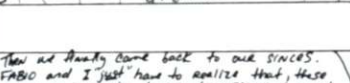 Then we finally came back to our SINCES.
FABIO and I "just" have to realize that, these